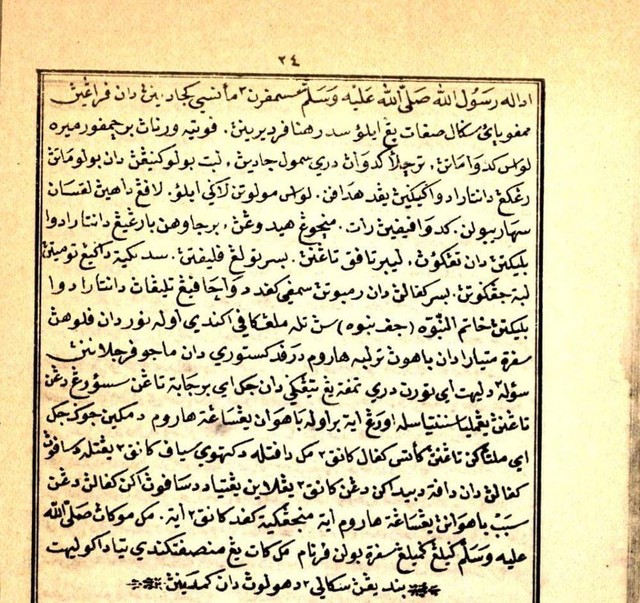 ٢٤
اداله رَسُول الله صَلَّى الله عَلَيْه وَسَلَّمْ سمفرن٢ مأنسي كجادينڽ دان فراڠين
ممفوڽاءي سكال صفات يڠ ايلؤ سدرهنا فرديرينڽ. فوتيه ورناڽ برچمفور ميره
لواس كدوا ماتڽ، ترچلا كدواڽ دري سمول جادين، لبت بولو كنيڠڽ دان بولو ماتڽ
دانتارا دوا كنيڠڽ هدافن. لواس مولوتڽ لاكي ايلؤ. لافڠ داهيڽ لقسان
سهاري بولن. كدوا فيفيڽ رات. منچوڠ هيدوڠڽ، برجاوهن بارڠيڠ دانتارا دوا
بليكتڽ دان تڠكوقڽ، ليبر تافق تاڠنڽ. بسر تولڠ. سديكية داكيڠ
لبة جڠكوتڽ. بسر كفالڽ دان رمبوتڽ سمفي كفد دوا چافيڠ تليڠاڽ دانتارا دوا
بليكتڽ خاتم النّبُوَّة (چف نبوه) سڽ تله ملڠكافي اكندي اوله نور دان فلوهڽ
سفرة متيارا دان باهوڽ ترلبه هاروم درفد كستوري دان ماجو فرجلاننڽ
سؤله٢ دليهت اي تورن دري تمفة يڠ تيڠكي دان جك اي برجابة تاڠن سسؤرڠ دڠن
تاڠنڽ يڠمليا سننتياسله اورڠ اية براوله باهوان يڠساڠة هاروم دمكين جوك جكل
اي ملتقكن تاڠنڽ كأتس كفال كانق٢ مك دافتله دكتهوي سياف كانق٢ يڠتله دسافوڽ
كفالڽ دان دافة دبيداكن دڠن كانق٢ يڠلاين يڠتياد دسافوڽ اكن كفالڽ دڠن
سبب باهوانڽ يڠساڠة هاروم اية منجڠكيه كفد كانق٢ ايه. مك موكاڽ صَلَّى الله
عليه وَسَلَّم كيلڠ كميلڠ سفرة بولن فرنام مك كات يڠ منصفتكندي تيادا كوليهت
بنديڠن سكالي٢ دهولوڽ دان كمدينڽ